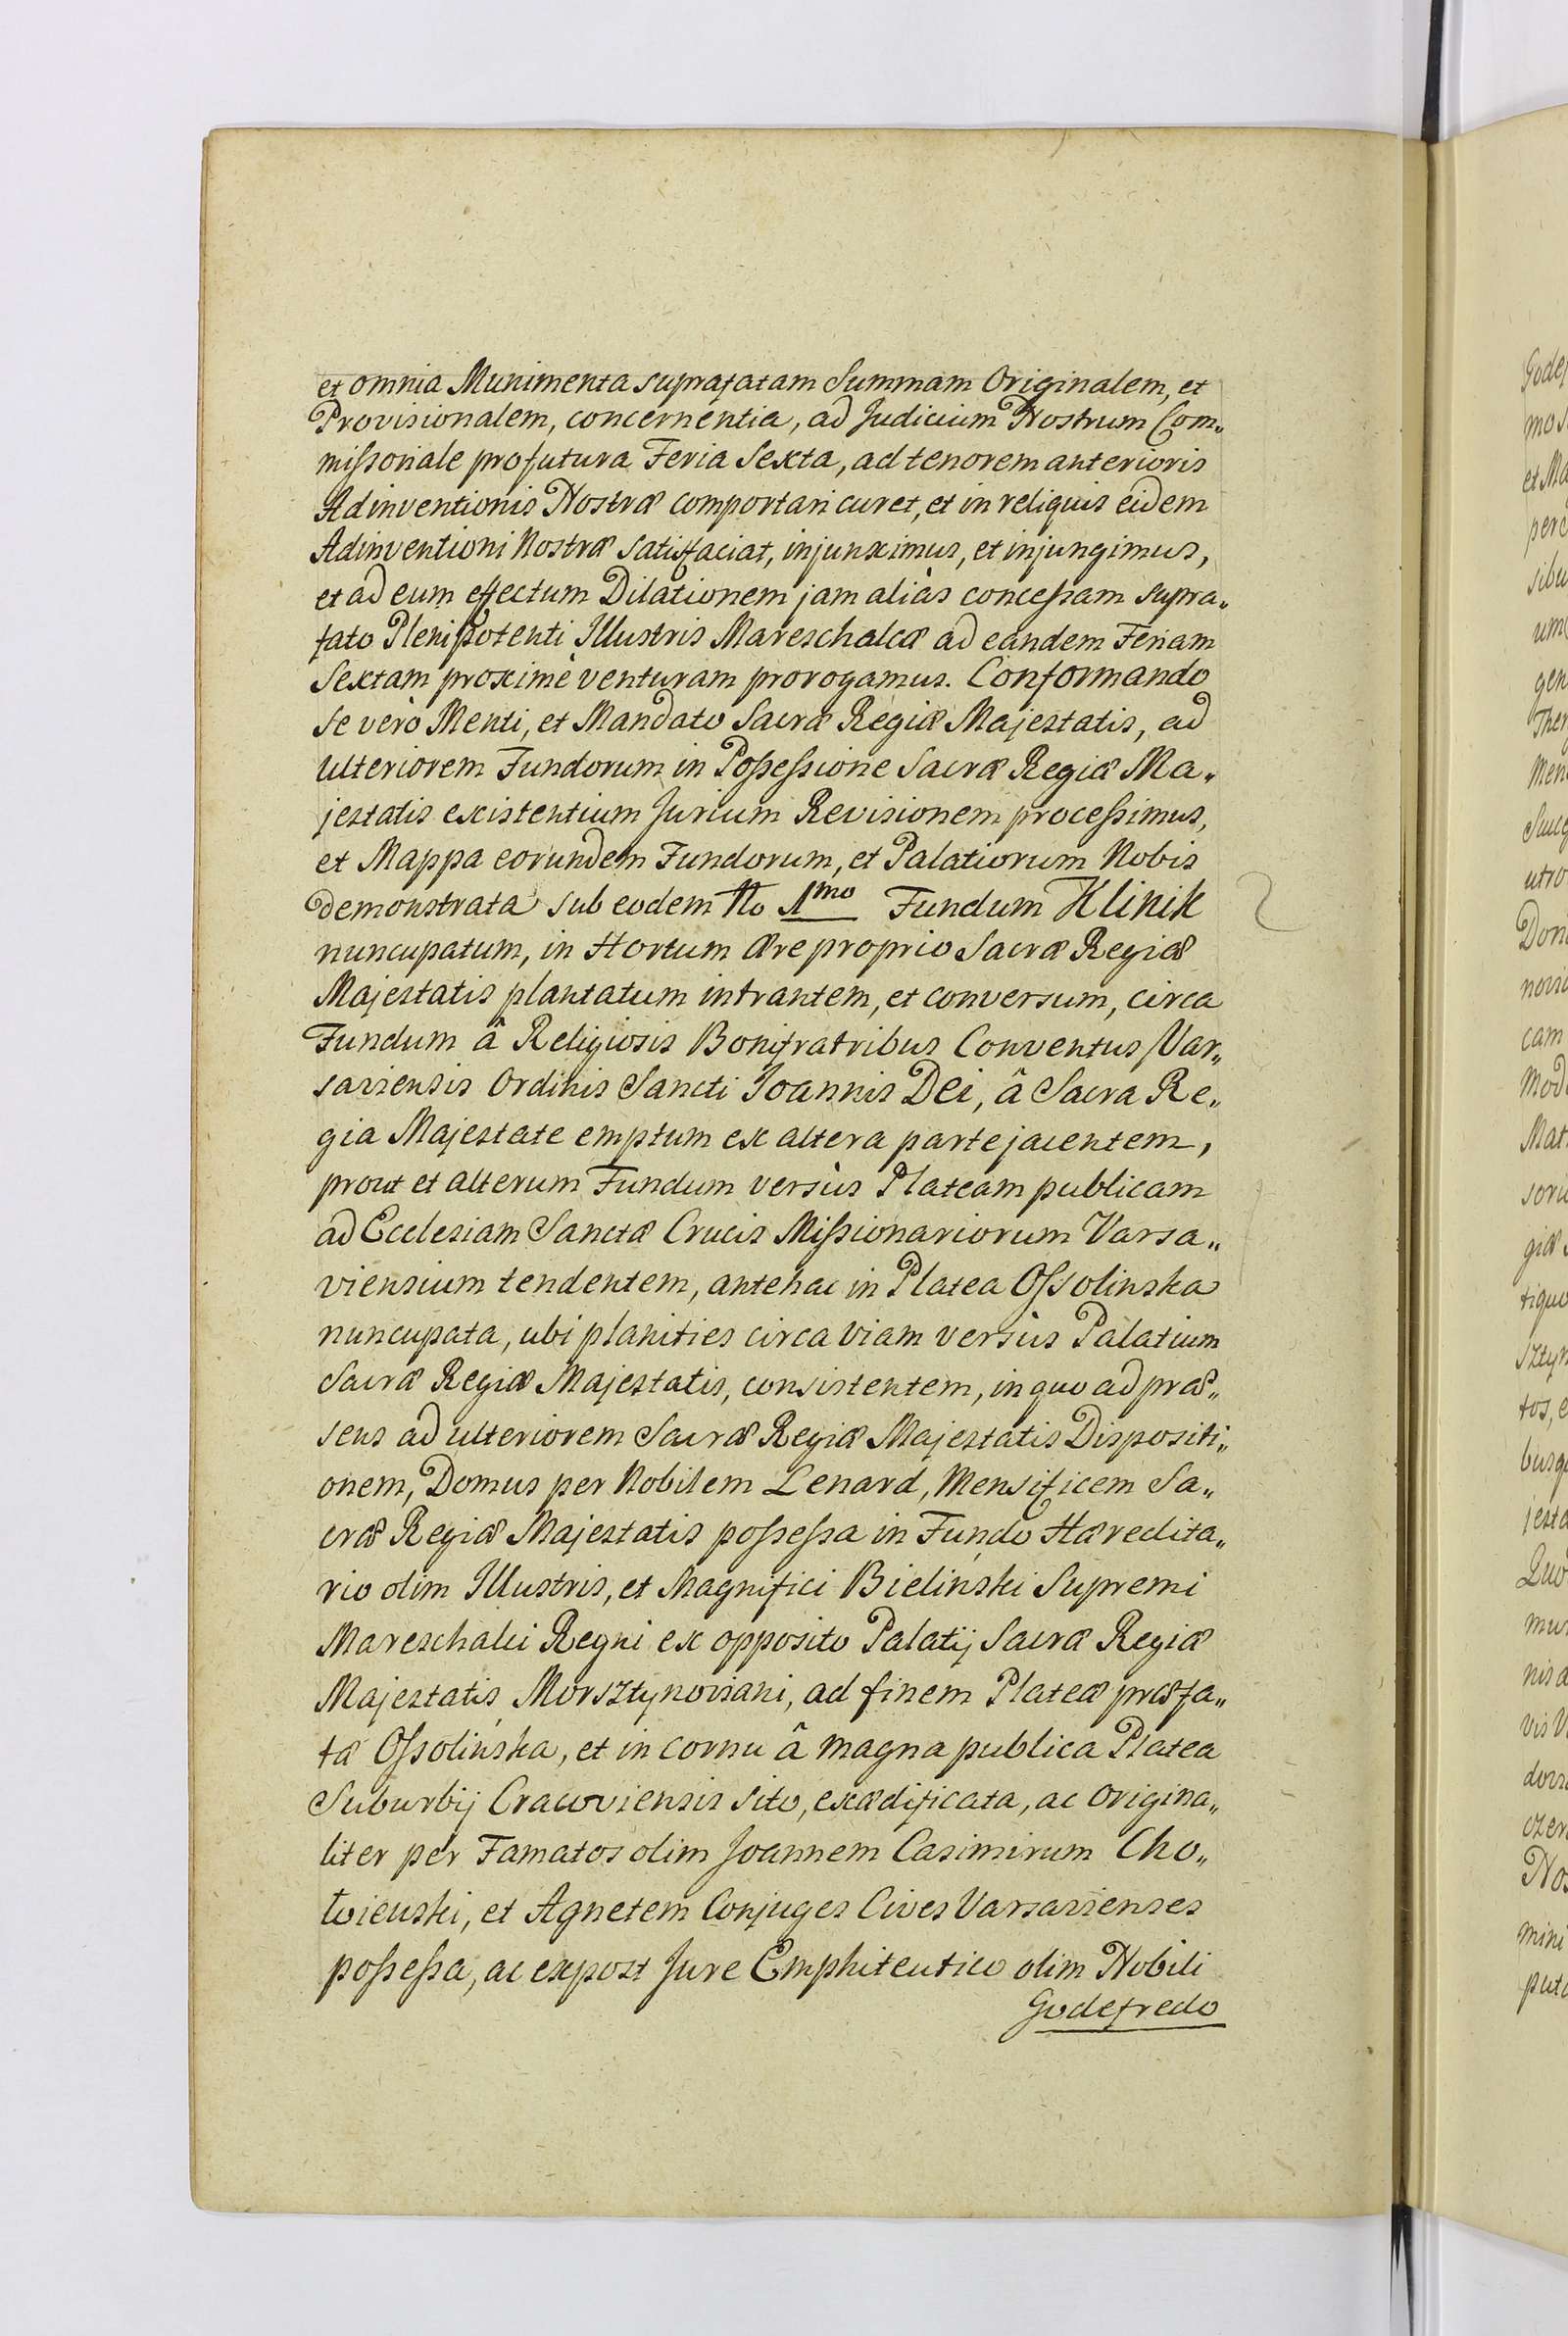 et omnia Munimenta suprafatam Summam Originalem, et
Provisionalem, concernentia, ad Judicium Nostrum Com„
mißoriale profutura Feria Sexta, ad tenorem anterioris
Adinventionis Nostræ comportari curet, et in reliquis eidem
Adinventioni Nostræ satisfaciat, injunximus, et injungimus,
et ad eum effectum Dilationem jam aliàs conceßam supra„
fato Plenipotenti Illustris Mareschalcæ ad eandem Feriam
Sextam proximè venturam prorogamus. Conformando
se verò Menti, et Mandato Sacræ Regiæ Majestatis, ad
ulteriorem Fundorum in Poßeßione Sacræ Regiæ Ma„
jestatis existentium Jurium Revisionem proceßimus,
et Mappa eorundem Fundorum, et Palatiorum Nobis
demonstrata sub eodem No 1mo Fundum Klinik
nuncupatum, in Hortum ære proprio Sacræ Regiæ
Majestatis plantatum intrantem, et conversum, circa
Fundum â Religiosis Bonifratribus Conventus Var„
saviensis Ordinis Sancti Joannis Dei, â Sacra Re„
gia Majestate emptum ex altera parte jacentem,
prout et alterum Fundum versùs Plateam publicam
ad Ecclesiam Sanctæ Crucis Mißionariorum Varsa„
viensium tendentem, antehac in Platea Oßolinska
nuncupata, ubi planities circa viam versùs Palatium
Sacræ Regiæ Majestatis, consistentem, in quo ad præ„
sens ad ulteriorem Sacræ Regiæ Majestatis Dispositi„
onem, Domus per Nobilem Lenard, Mensificem Sa„
cræ Regiæ Majestatis poßeßa in Fundo Hæredita„
rio olim Illustris, et Magnifici Bielinski Supremi
Mareschalci Regni ex opposito Palatij Sacræ Regiæ
Majestatis Morsztynoviani, ad finem Plateæ præfa„
tæ Oßolińska, et in cornu â magna publica Platea
Suburbij Cracoviensis sito, exædificata, ac origina„
liter per Famatos olim Joannem Casimirum Cho„
wieuski, et Agnetem Conjuges Cives Varsavienses
poßeßa, ac expost Jure Emphiteutico olim Nobili
Godefredo